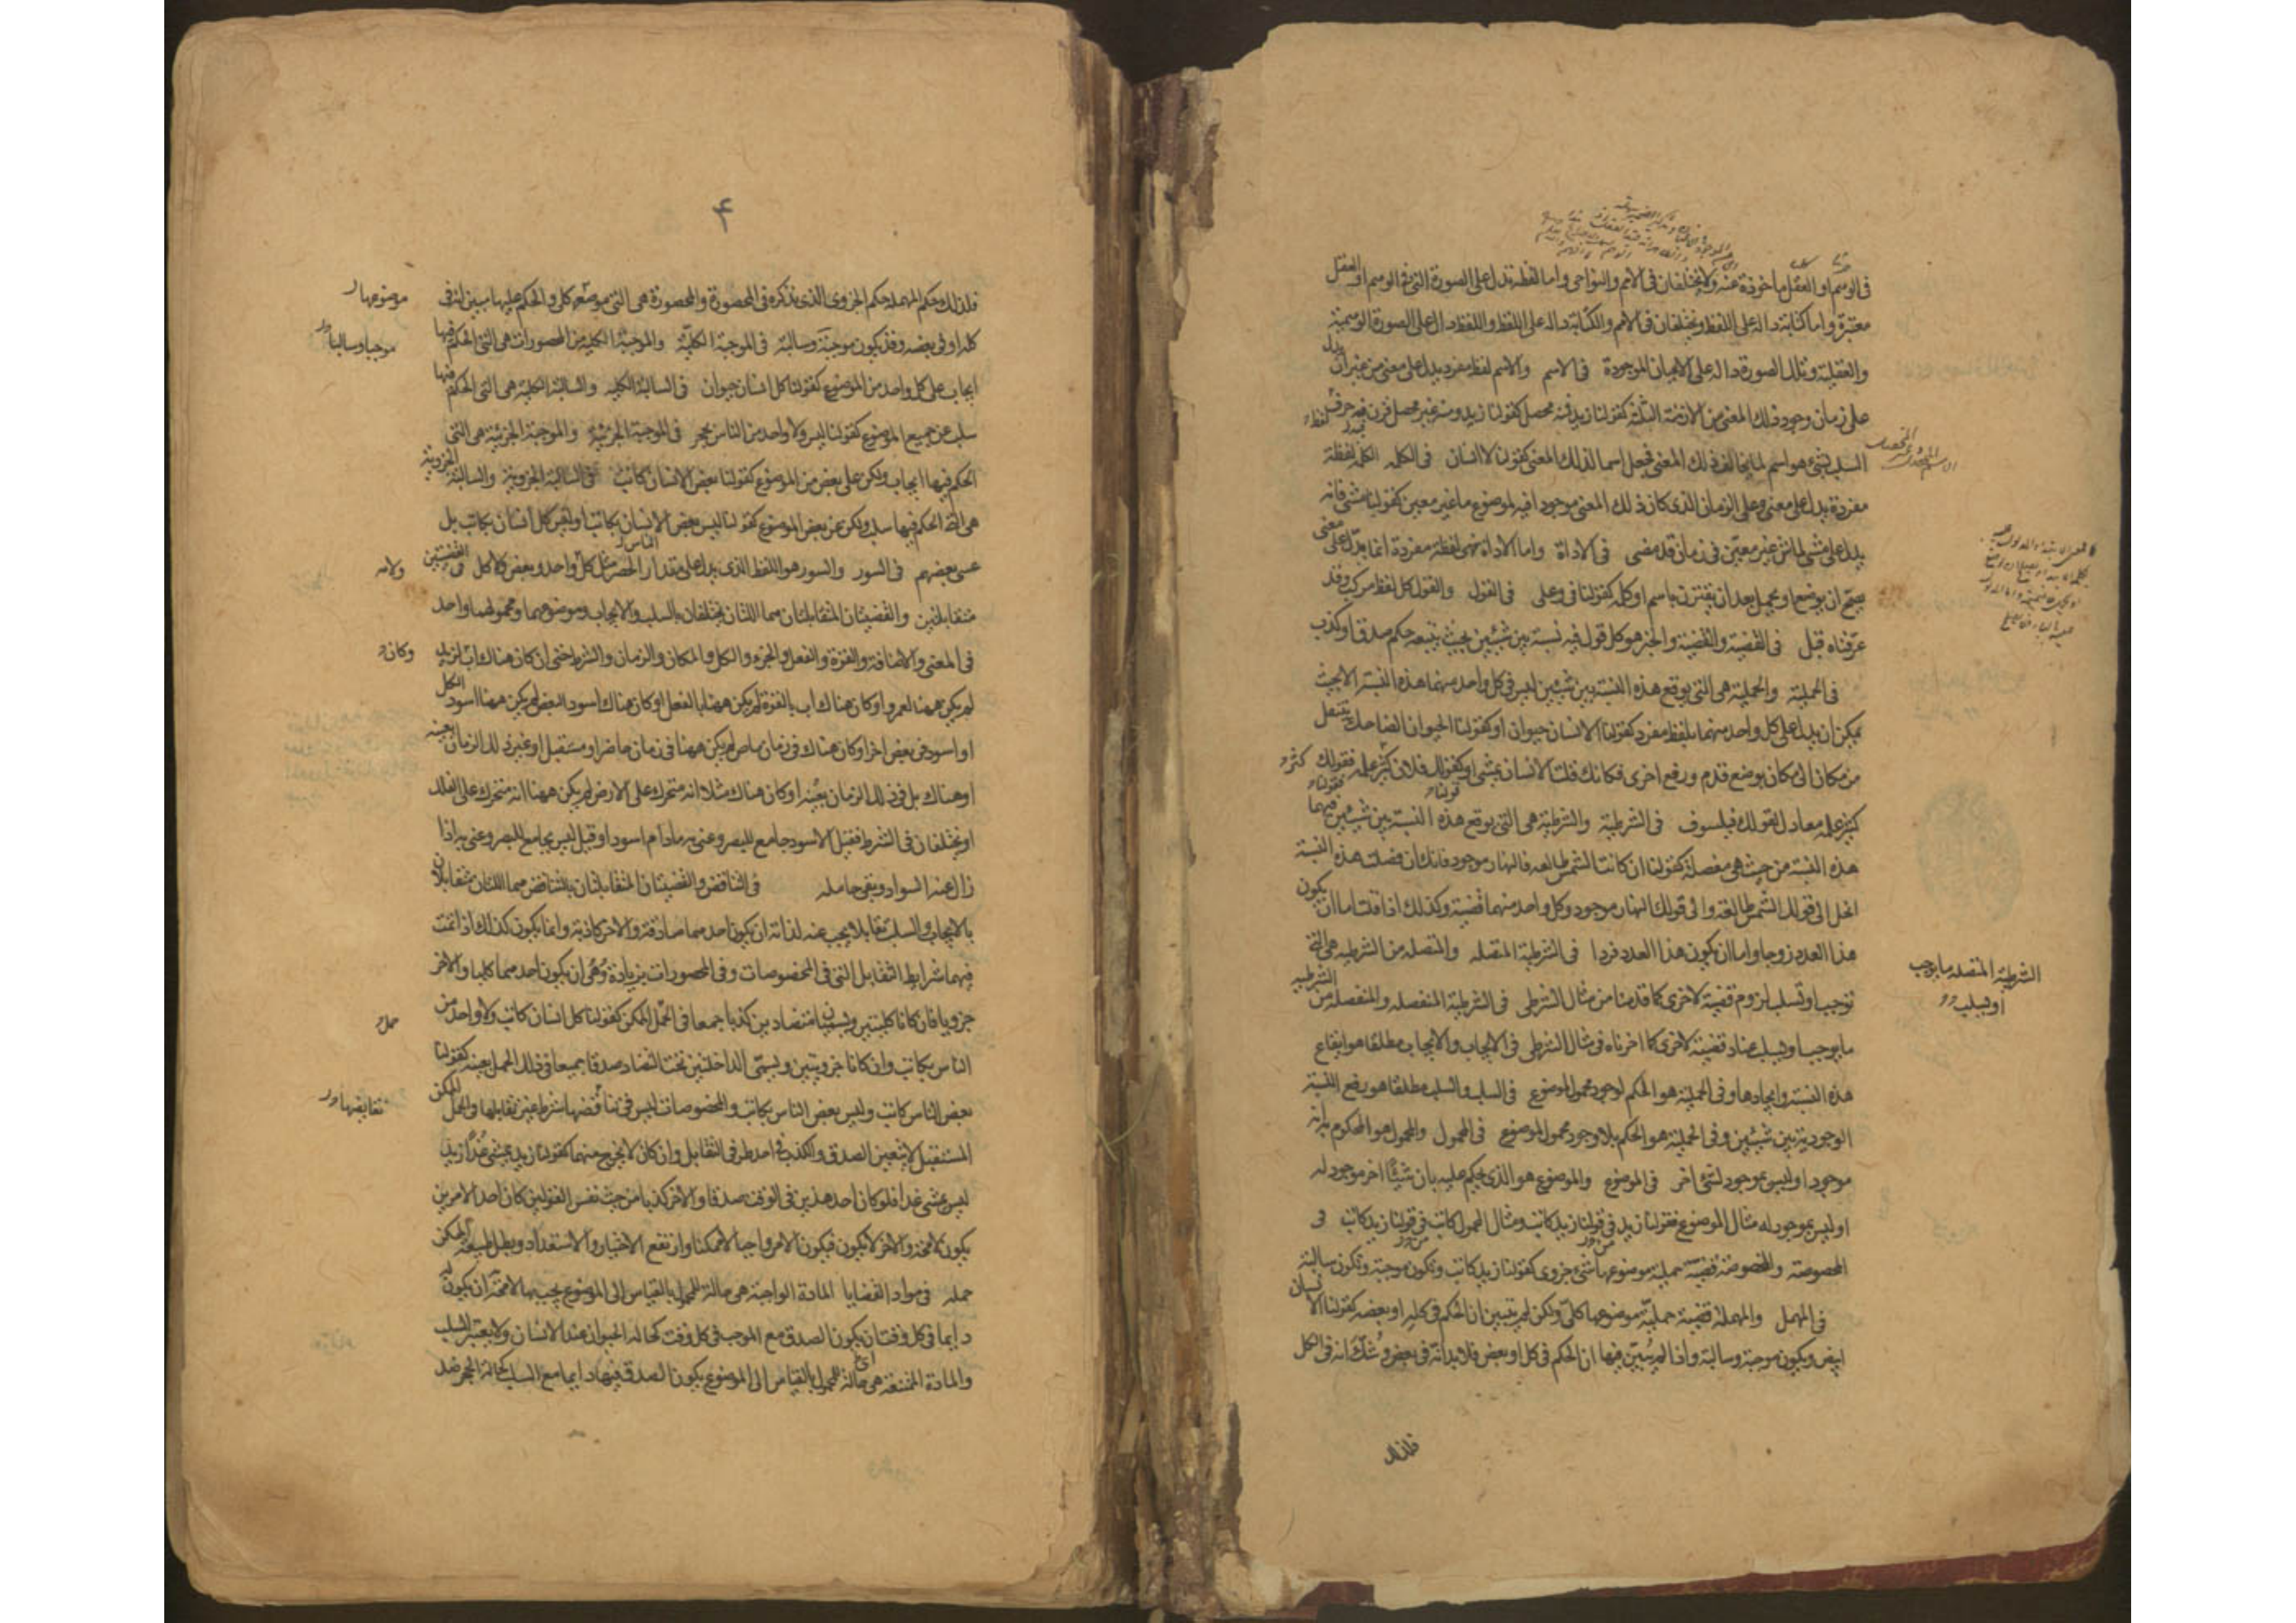 في الوهم او العقل ماخوذة عنه ولا يختلفان في الامم والنواحي واما لفظة تدل على الصورة التي في الوهم او العقل
معتبرة واما كتابة دالة على اللفظ ويختلفان في الامم والكتابة دالة على اللفظ واللفظ دال على الصورة الوهمية
والعقلية وتلك الصورة دالة على الاعيان الموجودة في الاسم والاسم لفظ مفرد يدل على معنى من غير ان يدل
على زمان وجود ذلك المعنى من الازمنة الثلثة كقولنا زيد فمنه محصل كقولنا زيد ومنه غير محصل قرن فيه حرف
السلب بشئ هو اسم لما يخالف ذلك المعنى فجعل اسما لذلك المعنى كقولنا لا انسان في الكلمه الكلمه لفظة
مفردة يدل على معنى وعلى الزمان الذى كان ذلك المعنى موجودا فيه لموضوع ما غير معين كقولنا مشى فانه
يدل على مشى لماش غير معين في زمان قد مضى في الاداة واما الاداة فهى لفظة مفردة انما يدل على معنى
يصح ان يوضع او يحمل بعد ان يقترن باسم او كلمه كقولنا في وعلى في القول والقول كل لفظ مركب وقد
عرفناه قبل في القضية والقضية والخبر هو كل قول فيه نسبة بين شيئين بحيث يتبعه حكم صدق او كذب
في الحملية والحملية هى التى يوقع هذه النسبة بين شيئين ليس في كل واحد منهما هذه النسبة الا بحيث
يمكن ان يدل على كل واحد منهما بلفظ مفرد كقولنا الانسان حيوان او كقولنا الحيوان الضاحك ينتقل
من مكان الى مكان بوضع قدم ورفع اخرى فكانك قلت الانسان يمشى او كقولك فلان كثير علمه فقولك
كثير علمه معادل لقولك فيلسوف في الشرطية والشرطية هى التى يوقع هذه النسبة بين شيئين فيهما
هذه النسبة من حيث هى مفصلة كقولنا ان كانت الشمس طالعه فالنهار موجود فانك ان فصلت هذه النسبة
انحل الى قولك الشمس طالعة والى قولك النهار موجود وكل واحد منهما قضية وكذلك اذا قلت اما ان يكون
هذا العدد زوجا واما ان يكون هذا العدد فردا في الشرطية المتصله والمتصله من الشرطيه هى التى
توجب او تسلب لزوم قضية لاخرى كما قدمنا من مثال الشرطى في الشرطية المنفصله والمنفصله من الشرطيه
ما يوجب او يسلب عناد قضية لاخرى كما اخرناه في مثال الشرطى في الايجاب والايجاب مطلقا هو ايقاع
هذه النسبة وايجادها وفى الحملية هو الحكم لوجود محمول لموضوع في السلب والسلب مطلقا هو رفع النسبة
الوجودية بين شيئين وفى الحملية هو الحكم بلا وجود محمول لموضوع في المحمول والمحمول هو المحكوم به انه
موجود او ليس بموجود لشئ اخر في الموضوع والموضوع هو الذى يحكم عليه بان شيئا اخر موجود له
او ليس بموجود له مثال الموضوع قولنا زيد في قولنا زيد كاتب ومثال المحمول كاتب في قولنا زيد كاتب في
المخصوصة والمخصوصة قضية حملية موضوعها شئ جزوى كقولنا زيد كاتب وتكون موجبة وتكون سالبة
في المهمل والمهملة قضية حملية موضوعها كلى ولكن لم يتبين ان الحكم في كله او بعضه كقولنا الانسان
ابيض ويكون موجبة وسالبة واذا لم يتبين فيها ان الحكم في كل او بعض فلا بد انه في بعض وشك انه في الكل
الشرطية المتصله ما يوجب
او يسلب
فلذلك
۴
فلذلك حكم المهمله حكم الجزوى الذى نذكره في المحصورة والمحصورة هى التى موضعه كلى والحكم عليها مبين انه في
كله او في بعضه وقد يكون موجبة وسالبة في الموجبة الكلية والموجبة الكلية من المحصورات هى التى الحكم فيها
ايجاب على كل واحد من الموضوع كقولنا كل انسان حيوان في السالبة الكليه والسالبة الكلية هى التى الحكم فيها
سلب عن جميع الموضوع كقولنا ليس ولا واحد من الناس بحجر في الموجبة الجزئية والموجبة الجزئية هى التى
الحكم فيها ايجاب ولكن على بعض من الموضوع كقولنا بعض الانسان كاتب في السالبة الجزوية والسالبة الجزوية
هى التى الحكم فيها سلب ولكن عن بعض الموضوع كقولنا ليس بعض الانسان بكاتب او ليس كل انسان بكاتب بل
عسى بعضهم في السور والسور هو اللفظ الذى يدل على مقدار الحصر مثل كل واحد وبعض ولا كل في القضيتين
متقابلتين والقضيتان المتقابلتان هما اللتان يختلفان بالسلب والايجاب وموضوعهما ومحمولهما واحد
في المعنى والاضافة والقوة والفعل والجزء والكل والمكان والزمان والشرط حتى ان كان هناك اب لزيد
لم يكن ههنا لعمرو او كان هناك اب بالقوة لم يكن ههنا بالفعل او كان هناك اسود البعض لم يكن ههنا اسود الكل
او اسود في بعض اخر او كان هناك في زمان ماض لم يكن ههنا في زمان حاضر او مستقبل او غير ذلك الزمان بعينه
او هناك بل في ذلك الزمان بعينه او كان هناك مثلا انه متحرك على الارض لم يكن ههنا انه متحرك على الفلك
او يختلفان في الشرط فقيل الاسود جامع للبصر وعنى به مادام اسود او قيل ليس بجامع للبصر وعنى به اذا
زال عنه السواد وبقى حامله في التناقض والقضيتان المتقابلتان بالتناقض هما اللتان متقابلان
بالايجاب والسلب تقابلا يجب عنه لذاته ان يكون احدهما صادقة والاخر كاذبة وانما يكون كذلك اذا تمت
فيهما شرايط التقابل التى في المخصوصات وفى المحصورات بزيادة وهى ان يكون احدهما كليا والاخر
جزويا فان كانا كليتين ويسميان متضادين كذبا جمعا في الحمل الممكن كقولنا كل انسان كاتب ولا واحد من
الناس بكاتب وان كانا جزويتين ويسمى الداخلتين تحت التضاد صدقا جميعا في ذلك الحمل بعينه كقولنا
بعض الناس كاتب وليس بعض الناس بكاتب والمخصوصات ليس في تناقضها شرط غير تقابلها والحمل الممكن
المستقبل لا يتعين الصدق والكذب في احد طرفى التقابل وان كان لا يخرج منهما كقولنا زيد يمشى غدا زيد
ليس يمشى غدا فلو كان احد هذين في الوقت صدقا والاخر كذبا من حيث نفس القولين كان احد الامرين
يكون لا محة والاخر لا يكون فيكون الامر واجبا لا ممكنا وارتفع الاختيار والاستعداد وبطل طبيعة الممكن
جمله في مواد القضايا المادة الواجبة هى حالة للمحمول بالقياس الى الموضوع يجب بها لا محة ان يكون له
دايما في كل وقت ان يكون الصدق مع الموجب في كل وقت كحالة الحيوان عند الانسان ولا يعتبر السلب
والمادة الممتنعة هى حالة للمحمول بالقياس الى الموضوع يكون الصدق فيها دايما مع السلب كحالة الحجر عند
موضوعها
موجبا وسالبا
ولا
وكان
حمل
تقابلها